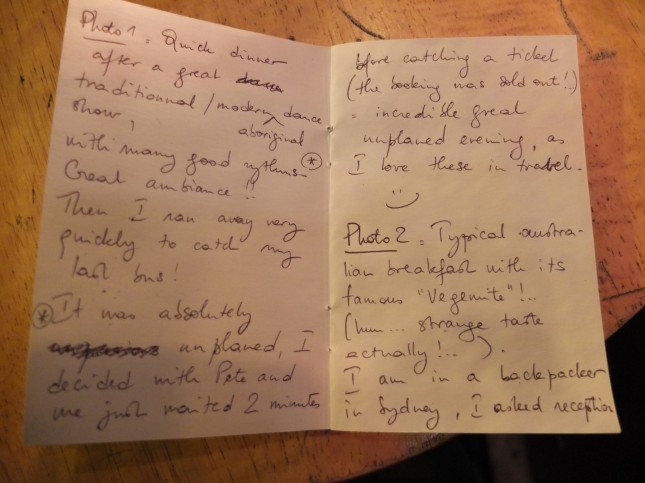 Photo 1 = Quick dinner
after a great
traditionnal / modern dance
aboriginal
show,
with many good rythms (*)
Great ambiance !!
Then I ran away very
quickly to catch my
last bus !
(*) It was absolutely
unplaned, I
decided with Pete and
we just waited 2 minutes
before catching a ticket
(the booking was sold out !)
= incredible great
unplaned evening, as
I love these in travel.
Photo 2 = Typical austra-
lian breakfast with its
famous "Vegemite" !..
(hum... strange taste
actually !... ).
I am in a backpacker
in Sydney, I asked reception